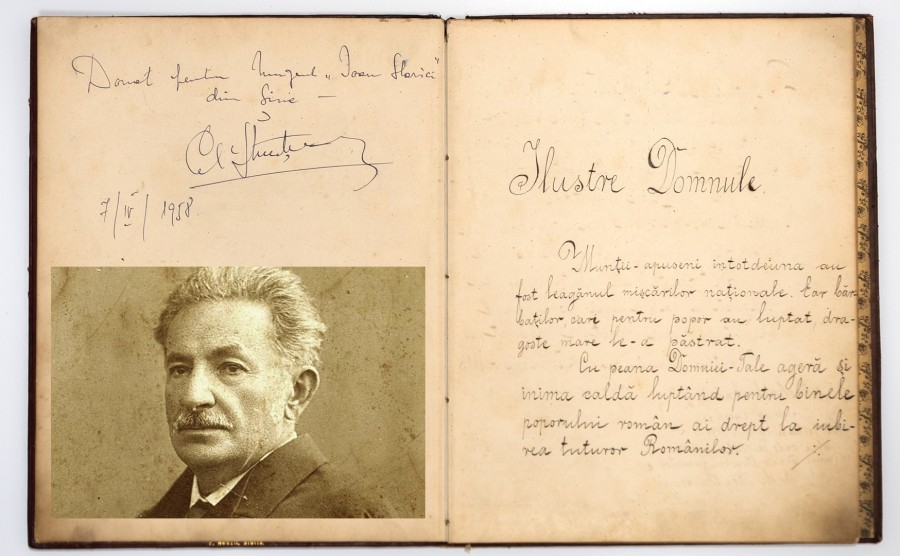 Donat pentru Muzeul „Ioan Slavici”
din Șiria —
7/IV/1958
Ilustre Domnule,
Munții-apuseni întotdeiuna au
fost leagănul mișcărilor naționale. Ear băr-
baților, care pentru popor au luptat, dra-
goste mare le-a păstrat.
Cu peana Domniei-Tale ageră și
inima caldă luptând pentru binele
poporului român ai drept la iubi-
rea tuturor Românilor.